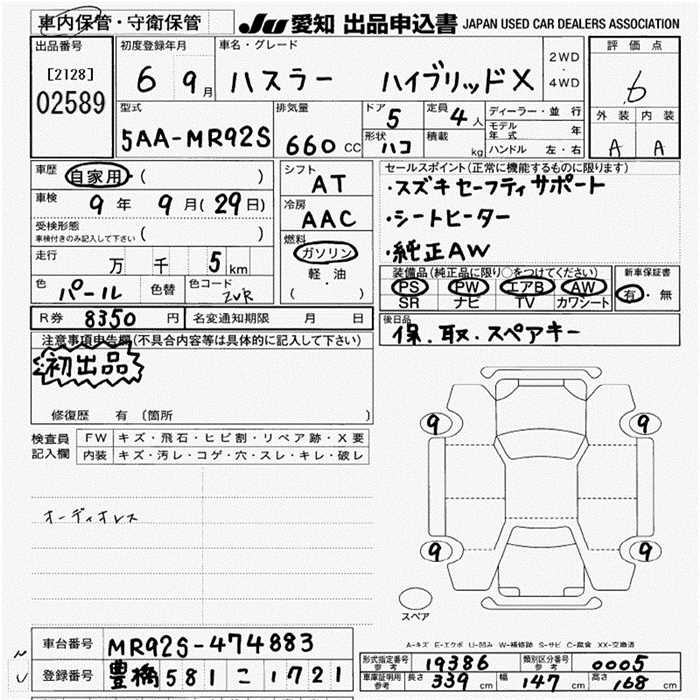 車内保管・守衛保管 JU 愛知 出品申込書 JAPAN USED CAR DEALERS ASSOCIATION
出品番号 初度登録年月 車名・グレード 評価点
[2128] 6 9月 ハスラー ハイブリッドX 2WD・4WD 6
02589
型式 排気量 ドア 5 定員 4人 ディーラー・並行 外装 内装
モデル年式 年
5AA-MR92S 660CC 形状 ハコ 積載 kg ハンドル 左・右 A A
車歴 自家用・( ) シフト AT セールスポイント(正常に機能するものに限ります)
・スズキセーフティサポート
車検 9年 9月(29日) 冷房 AAC ・シートヒーター
受検形態 車検付きのみ記入して下さい ( ) 燃料 ガソリン ・純正AW
走行 万 千 5km 軽・油 装備品(純正品に限り○をつけてください) 新車保証書
色 パール 色替 色コード ZVR ( ) PS PW エアB AW 有・無
SR ナビ TV カワシート
R券 8350円 名変通知期限 月 日 後日品
注意事項申告欄(不具合内容等は具体的に記入して下さい) 保.取.スペアキー
初出品
修復歴 有 (箇所 )
検査員記入欄 FW キズ・飛石・ヒビ割・リペア跡・X要
内装 キズ・汚レ・コゲ・穴・スレ・キレ・破レ
9 9
オーディオレス
9 9
スペア
A-キズ E-エクボ U-凹み W-補修跡 S-サビ C-腐食 XX-交換済
車台番号 MR92S-474883
登録番号 豊橋 581 こ 1721
形式指定番号 参考 19386 類別区分番号 参考 0005
車庫証明用 参考 長さ 339cm 幅 147cm 高さ 168cm